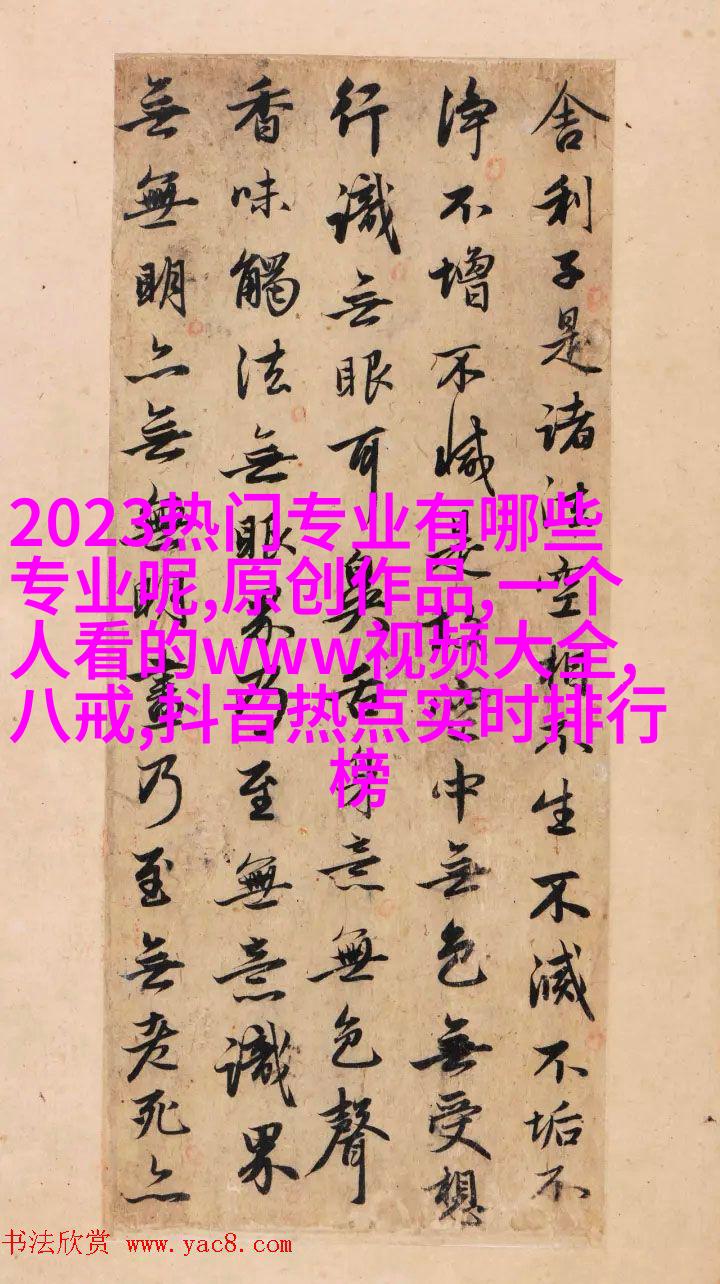 舍利子是諸法空相不生不滅不垢不
淨不增不減是故空中無色無受想
行識無眼耳鼻舌身意無色聲
香味觸法無眼界乃至無意識界
無無明亦無無明盡乃至無老死亦
2023热门专业有哪些
专业呢,原创作品,一个
人看的www视频大全,
八戒,抖音热点实时排行
榜
书法欣赏 www.yac8.com